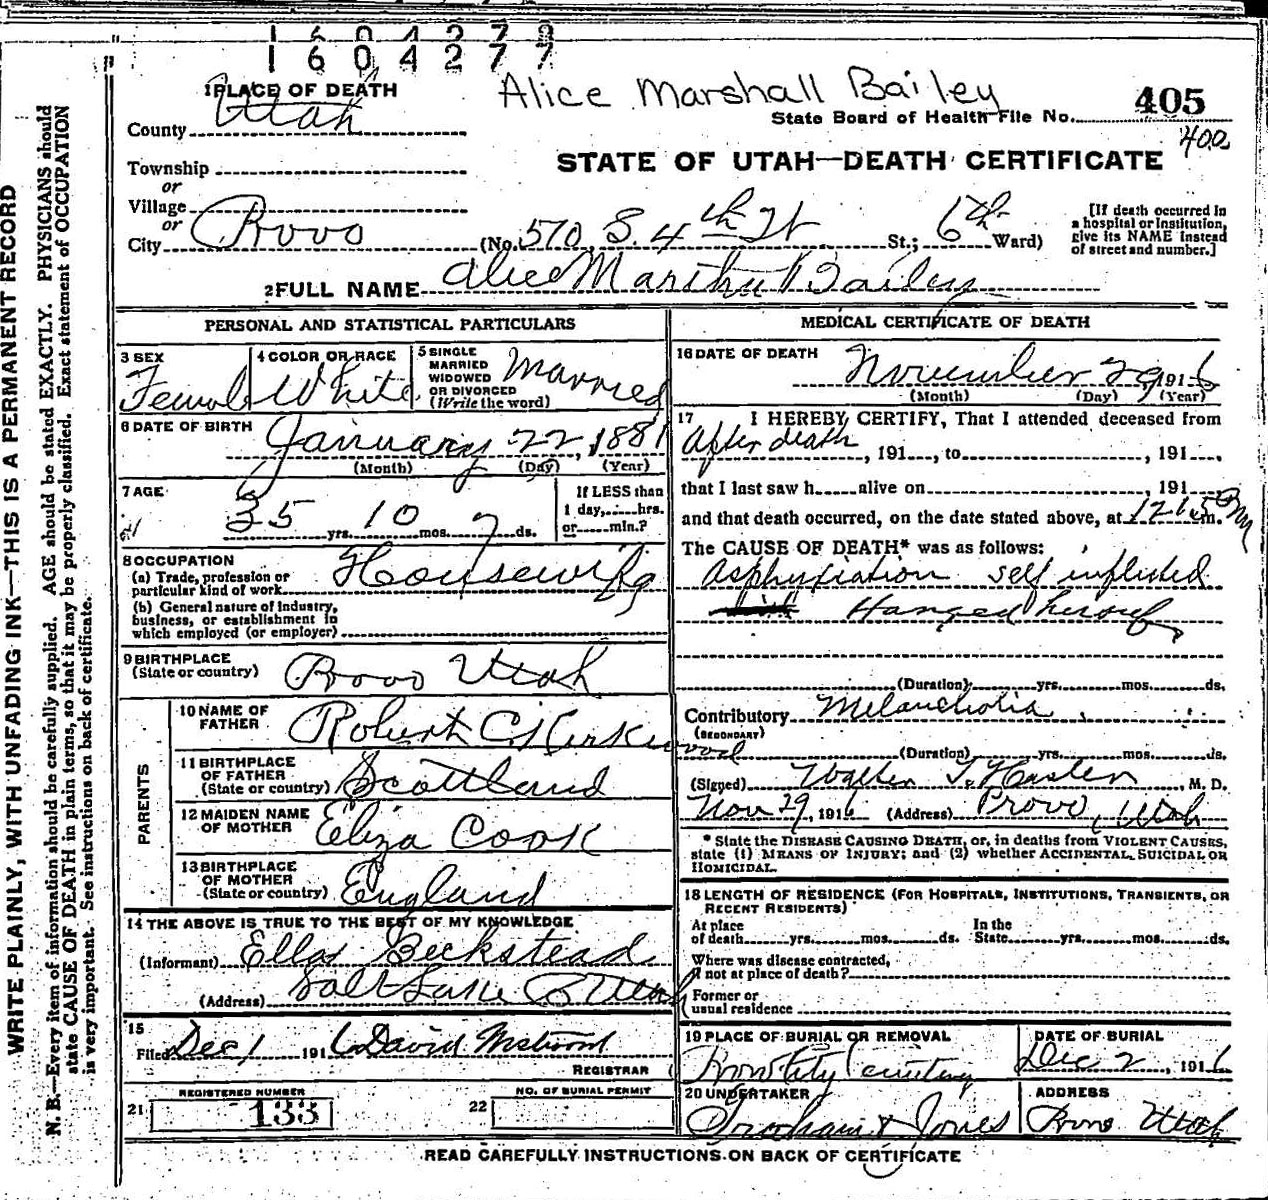 1604278
1604277
Alice Marshall Bailey
1 PLACE OF DEATH
County Utah
State Board of Health File No. 405
400
STATE OF UTAH—DEATH CERTIFICATE
Township
or
Village
or
City Provo (No. 570 S. 4th St St.; 6th Ward)
[If death occurred in
a hospital or institution,
give its NAME instead
of street and number.]
2 FULL NAME Alice Martha Bailey
PERSONAL AND STATISTICAL PARTICULARS
3 SEX
Female
4 COLOR OR RACE
White
5 SINGLE
MARRIED
WIDOWED
OR DIVORCED
(Write the word)
Married
6 DATE OF BIRTH
January 22, 1881
(Month) (Day) (Year)
7 AGE
35 yrs. 10 mos. 7 ds.
If LESS than
1 day, hrs.
or min.?
8 OCCUPATION
(a) Trade, profession or
particular kind of work Housewife
(b) General nature of industry,
business, or establishment in
which employed (or employer)
9 BIRTHPLACE
(State or country) Provo Utah
PARENTS
10 NAME OF
FATHER Robert C. Kirkwood
11 BIRTHPLACE
OF FATHER
(State or country) Scottland
12 MAIDEN NAME
OF MOTHER Eliza Cook
13 BIRTHPLACE
OF MOTHER
(State or country) England
14 THE ABOVE IS TRUE TO THE BEST OF MY KNOWLEDGE
(Informant) Ella Beckstead
(Address) Salt Lake C Utah
15
Filed Dec 1 1916 David
REGISTRAR
REGISTERED NUMBER
21 133
NO. OF BURIAL PERMIT
22
MEDICAL CERTIFICATE OF DEATH
16 DATE OF DEATH
November 29, 1916
(Month) (Day) (Year)
17 I HEREBY CERTIFY, That I attended deceased from
After death, 191, to , 191
that I last saw h alive on , 191
and that death occurred, on the date stated above, at 1215 Pm.
The CAUSE OF DEATH* was as follows:
Asphyxiation self inflicted
Hanged herself
(Duration) yrs. mos. ds.
Contributory Melancholia
(SECONDARY)
(Duration) yrs. mos. ds.
(Signed) Walter T. Hasler, M. D.
Nov 29, 1916 (Address) Provo, Utah
* State the DISEASE CAUSING DEATH, or, in deaths from VIOLENT CAUSES,
state (1) MEANS OF INJURY; and (2) whether ACCIDENTAL, SUICIDAL OR
HOMICIDAL.
18 LENGTH OF RESIDENCE (FOR HOSPITALS, INSTITUTIONS, TRANSIENTS, OR
RECENT RESIDENTS)
At place
of death yrs. mos. ds.
In the
State yrs. mos. ds.
Where was disease contracted,
if not at place of death?
Former or
usual residence
19 PLACE OF BURIAL OR REMOVAL
Provo City Cemetery
DATE OF BURIAL
Dec 2, 1916
20 UNDERTAKER
Graham & Jones
ADDRESS
Provo Utah
READ CAREFULLY INSTRUCTIONS ON BACK OF CERTIFICATE
WRITE PLAINLY, WITH UNFADING INK—THIS IS A PERMANENT RECORD
N. B.—Every item of information should be carefully supplied. AGE should be stated EXACTLY. PHYSICIANS should
state CAUSE OF DEATH in plain terms, so that it may be properly classified. Exact statement of OCCUPATION
is very important. See instructions on back of certificate.